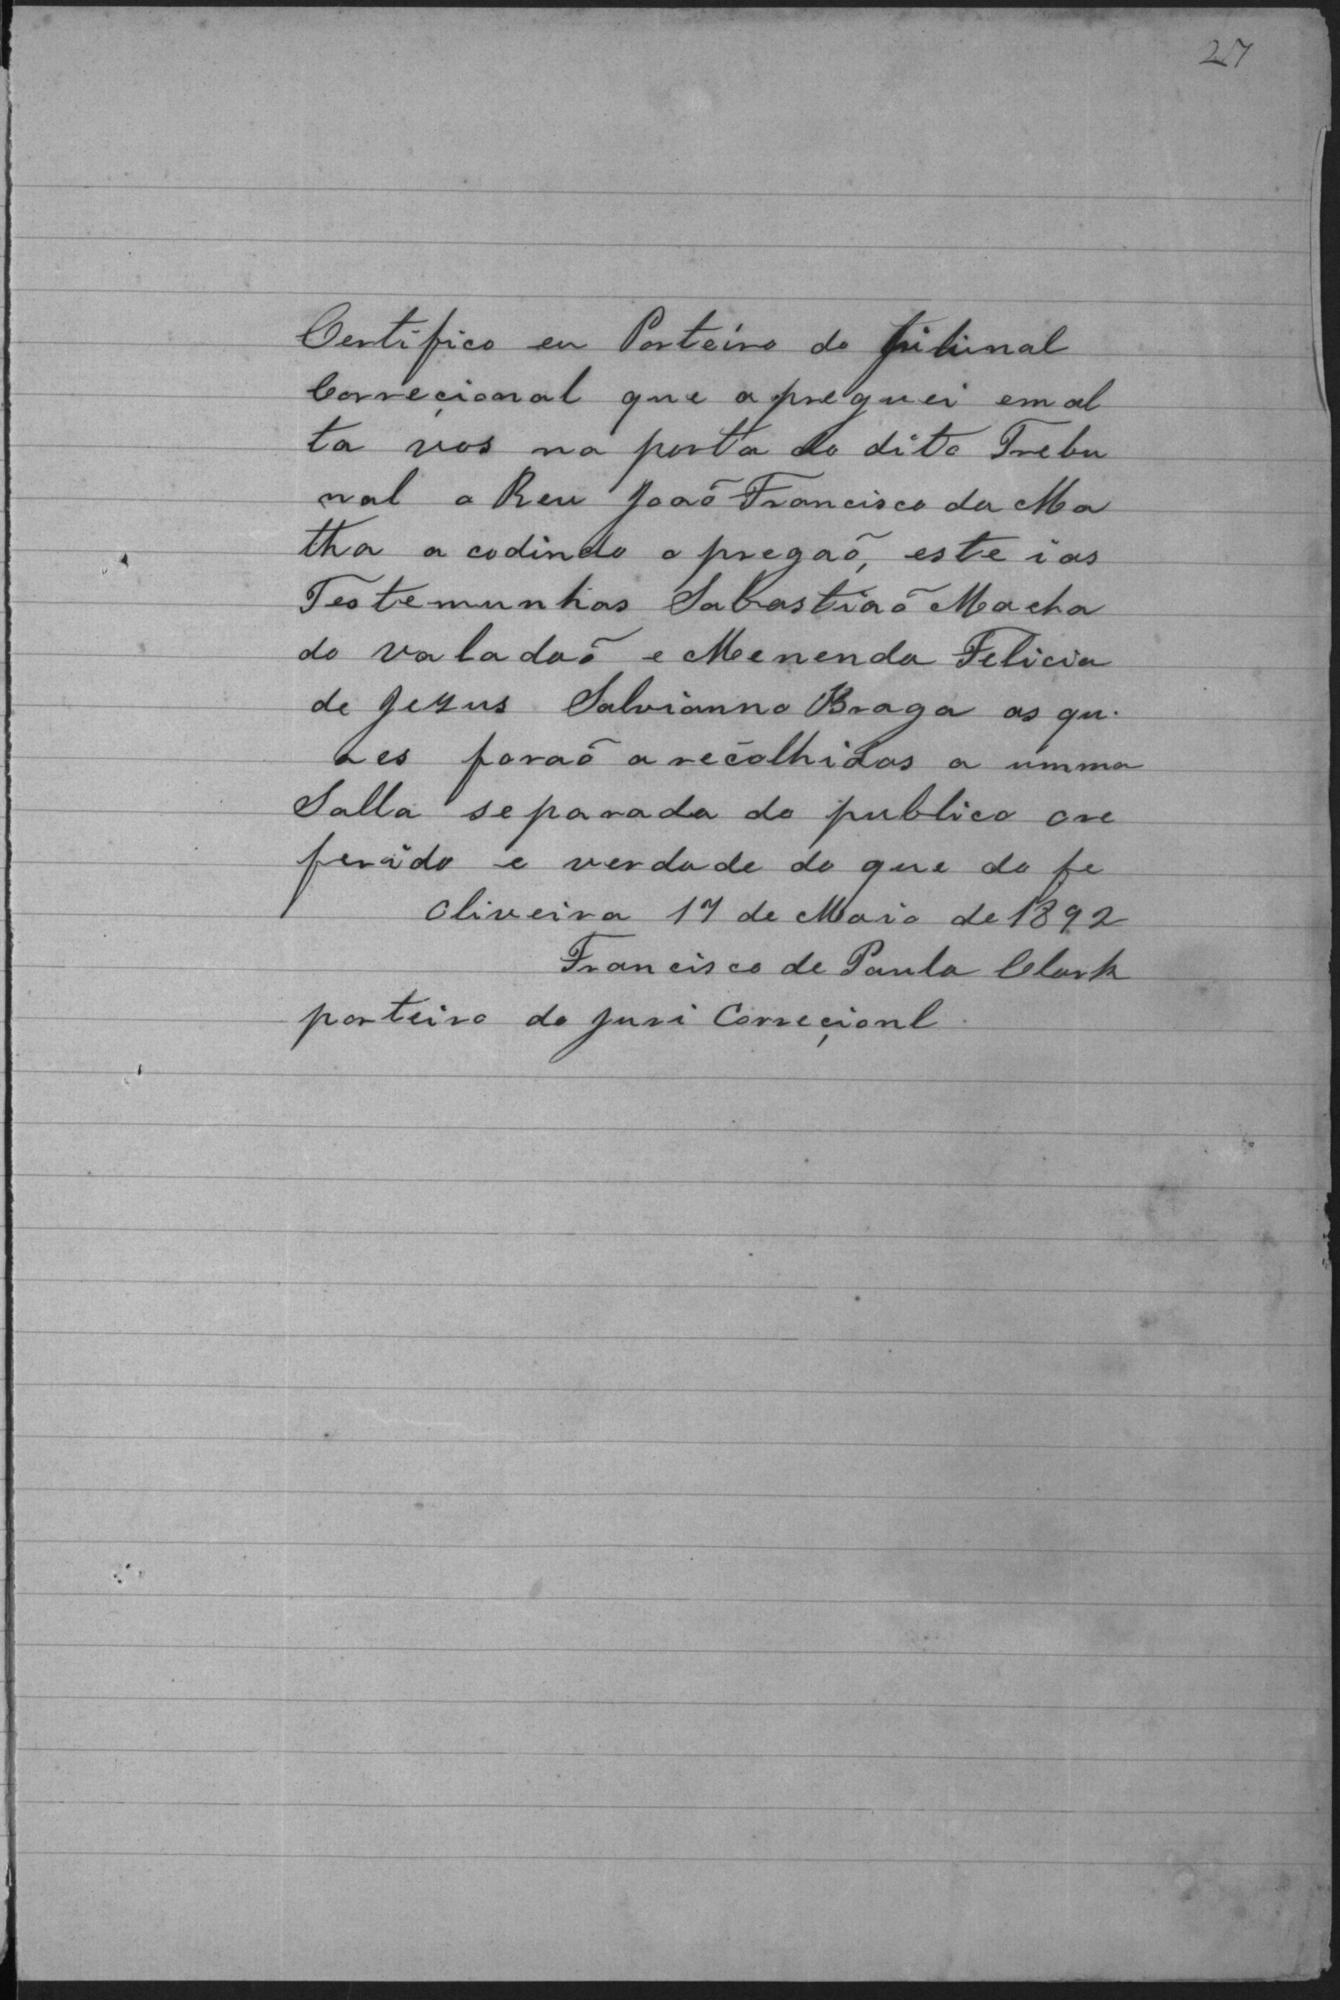 27
Certifico eu Porteiro do tribunal
Correçional que apreguei em al
ta vos na porta do dito Trebu
nal o Reu Joaõ Francisco da Ma
tha a codindo o pregaõ, este i as
Testemunhas Sabastiaõ Macha
do valadaõ e Menenda Felicia
de Jezus Salvianno Braga as qu.
aes foraõ arecolhidas a umma
Salla separada do publico ore
ferido e verdade do que do fe
Oliveira 17 de Maio de 1892
Francisco de Paula Clark
porteiro do juri Correçionl